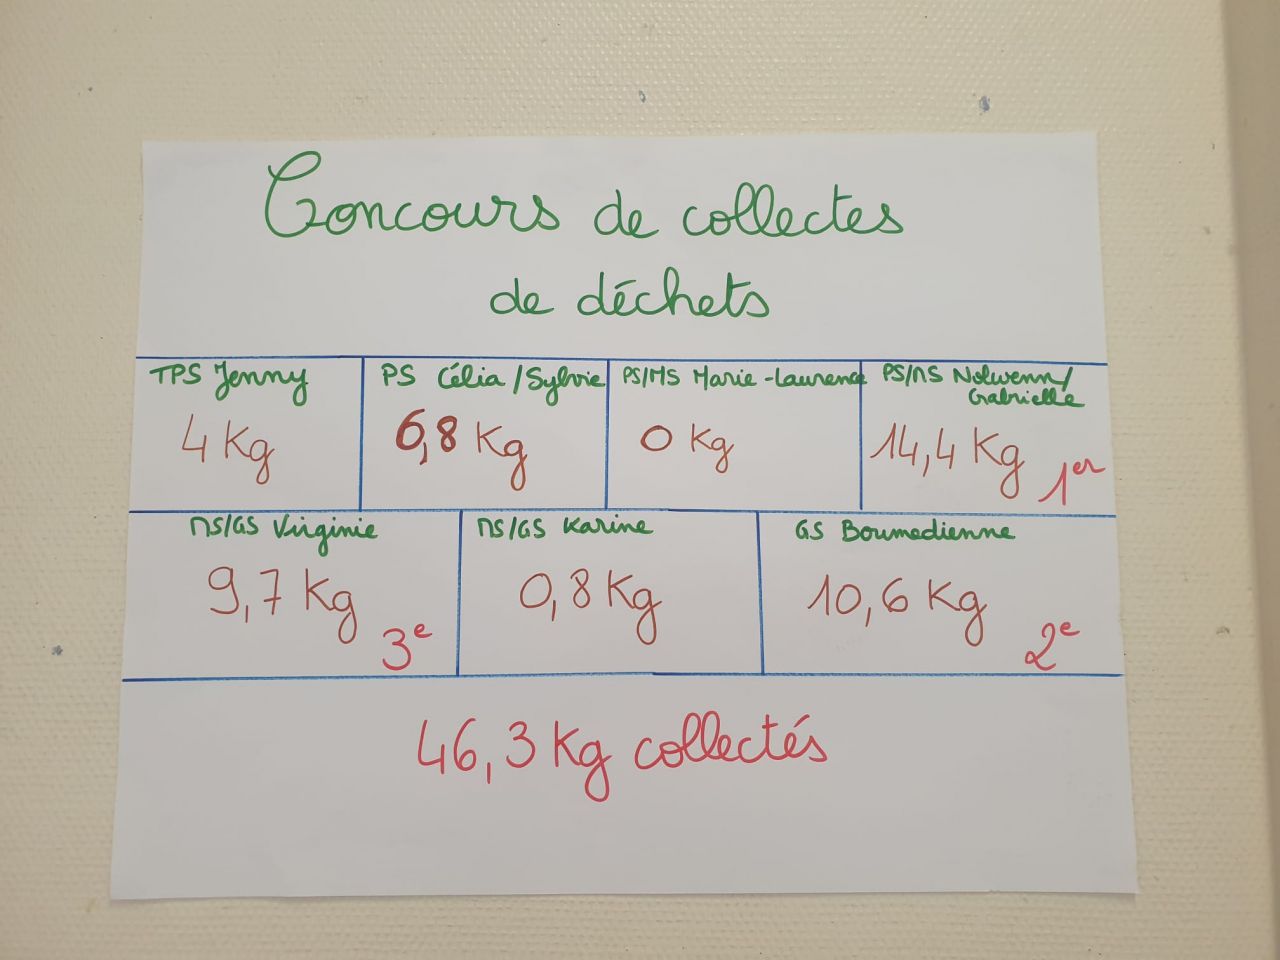 Concours de collectes
de déchets
TPS Jenny
4 Kg
PS Célia / Sylvie
6,8 Kg
PS/MS Marie-Laurence
0 Kg
PS/MS Nolwenn/
Gabrielle
14,4 Kg
1er
MS/GS Virginie
9,7 Kg
3e
MS/GS Karine
0,8 Kg
GS Boumedienne
10,6 Kg
2e
46,3 Kg collectés